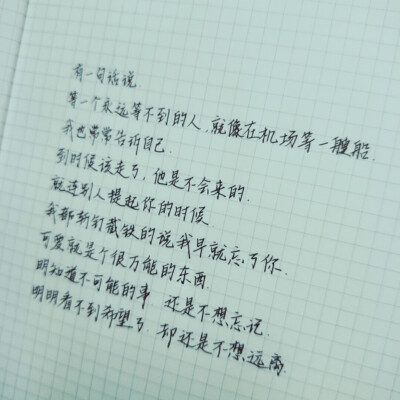 有一句话说
等一个永远等不到的人,就像在机场等一艘船.
我也常常告诉自己.
到时候该走了,他是不会来的.
就连别人提起你的时候
我都斩钉截铁的说我早就忘了你.
可爱就是个很万能的东西.
明知道不可能的事 还是不想忘记.
明明看不到希望了.却还是不想远离.